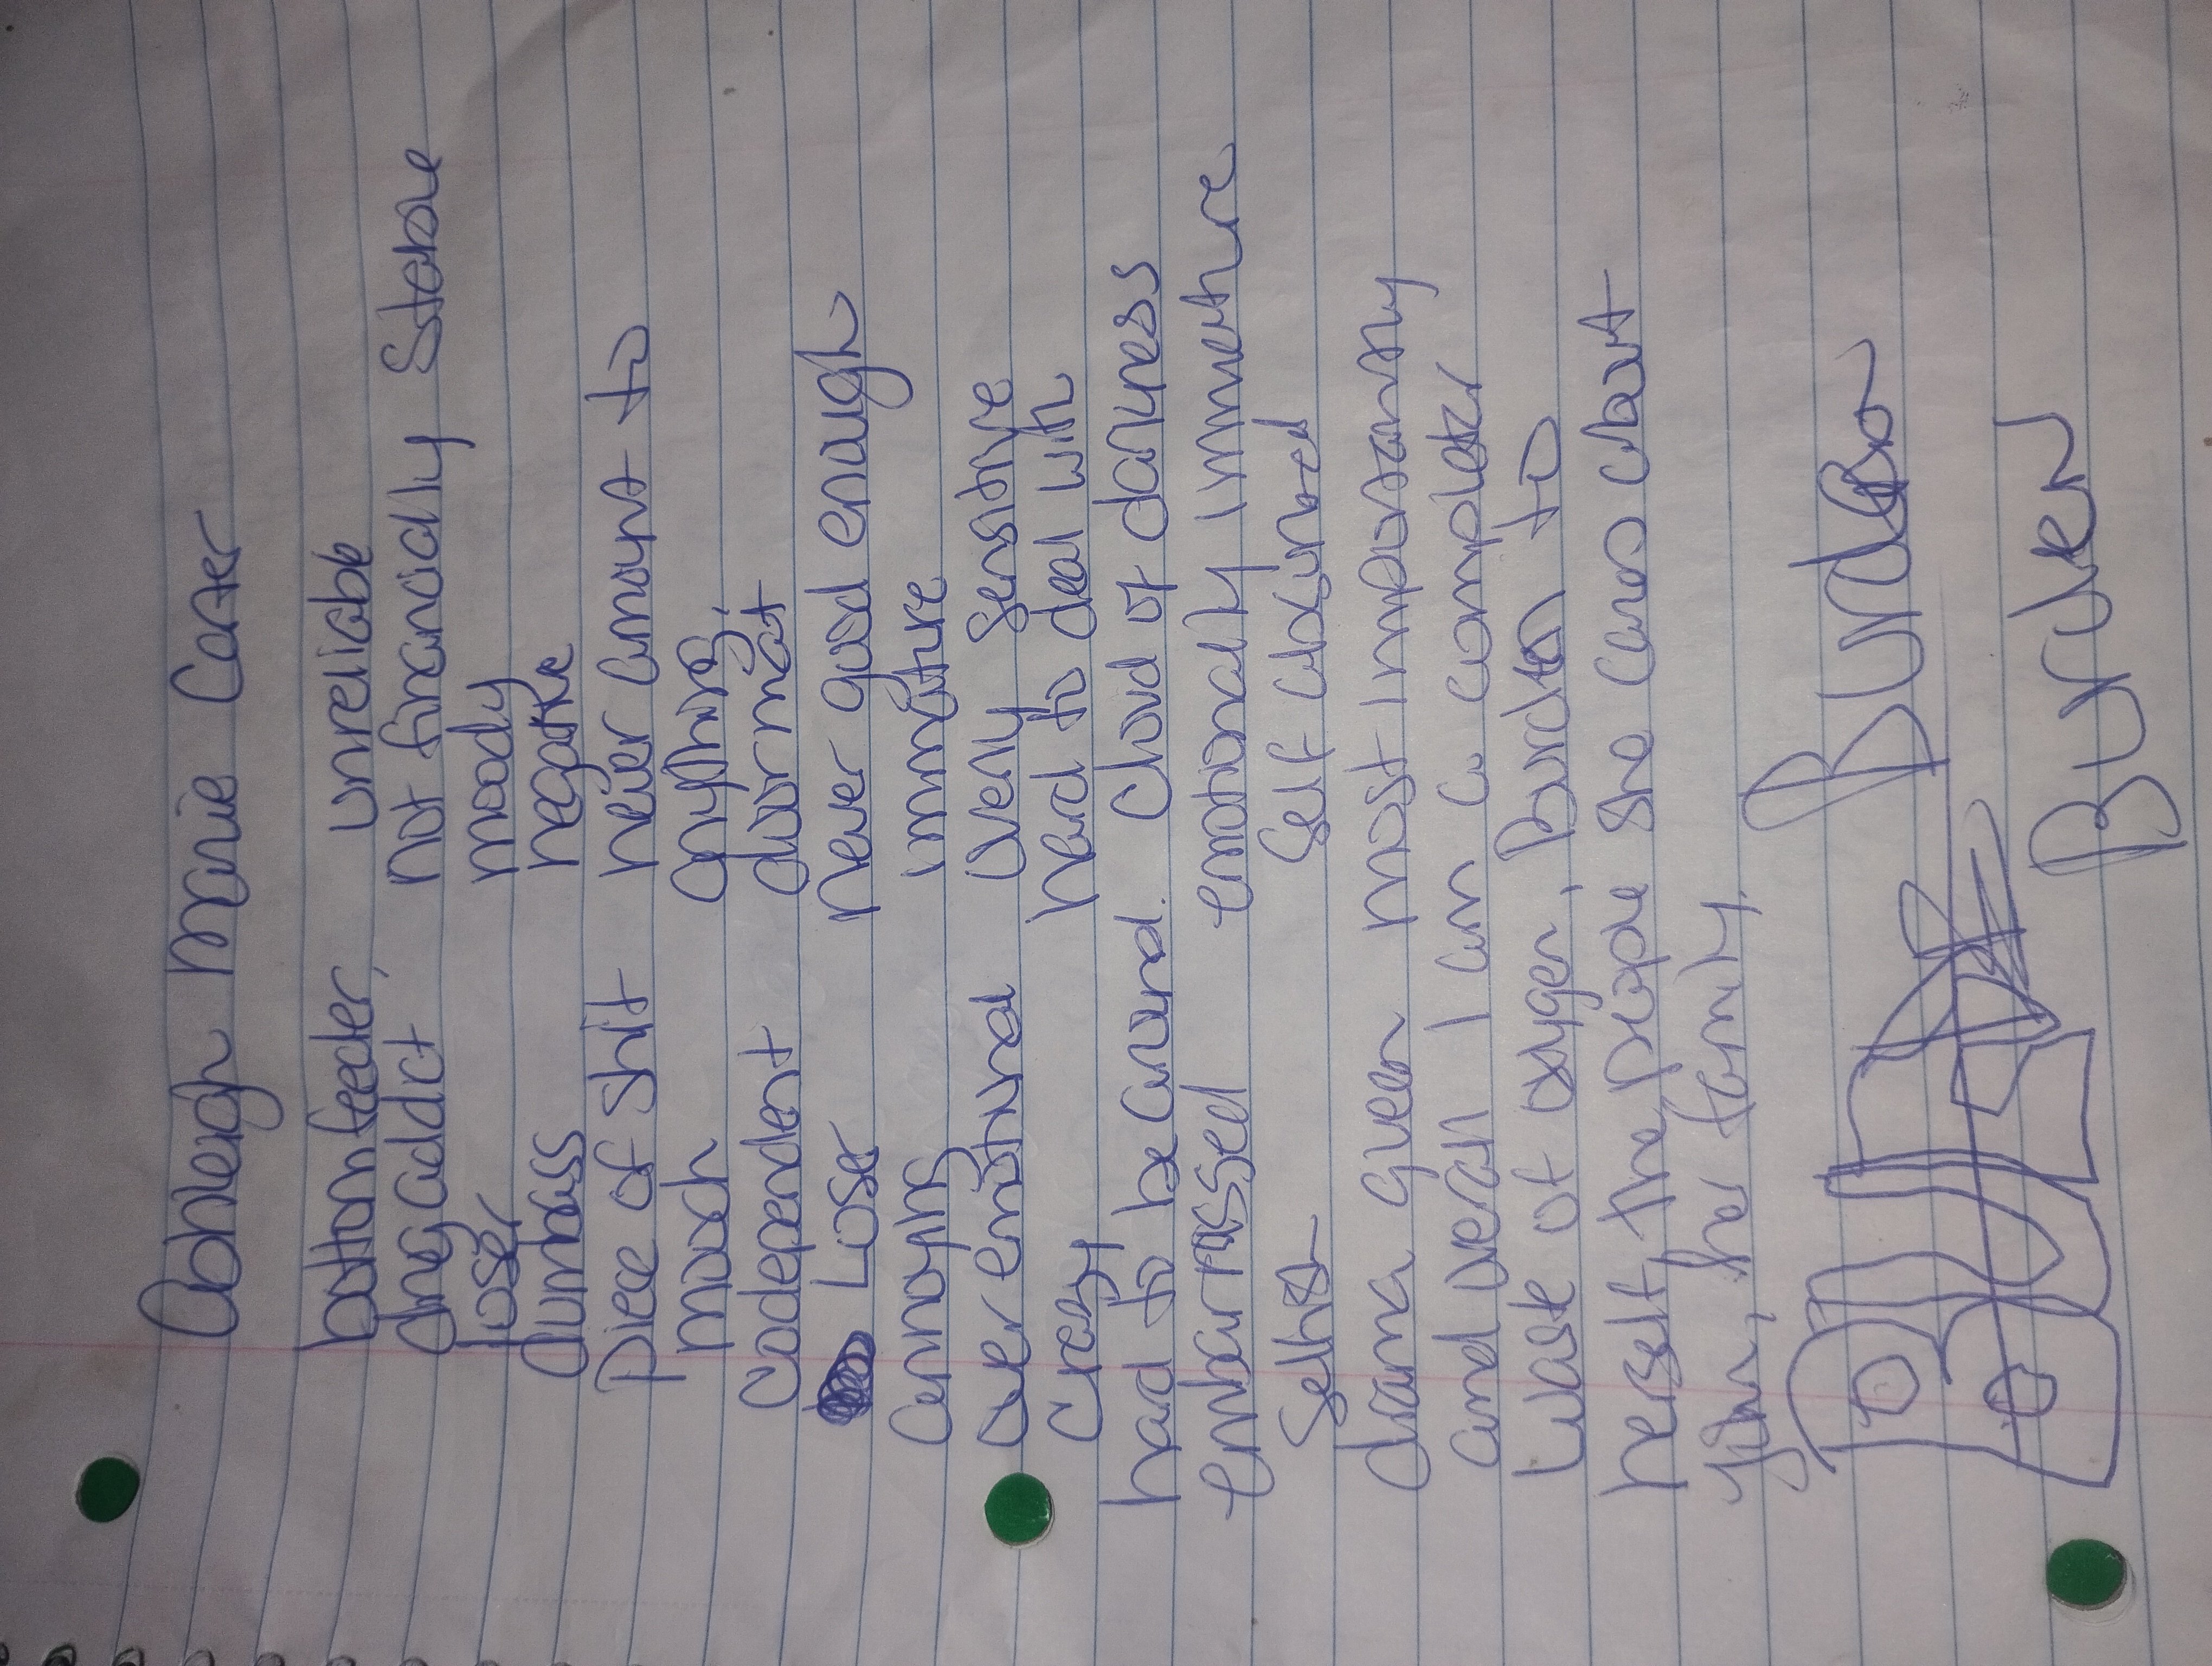 Ashleigh Marie Carter
bottom feeder, unreliable
drug addict not financially Stable
loser moody
dumbass negative
piece of shit never amount to
mooch anything,
codependent doormat
Loser never good enough
annoying immature
over emotional overly sensitive
crazy hard to deal with
hard to be around. cloud of darkness
embarrassed emotionally immature
selfish self absorbed
drama queen most importantly
and overall I am a complete
waste of oxygen, Burden to
herself, the people she cares about
Jim, her family,
BURDEN Burden
Burden